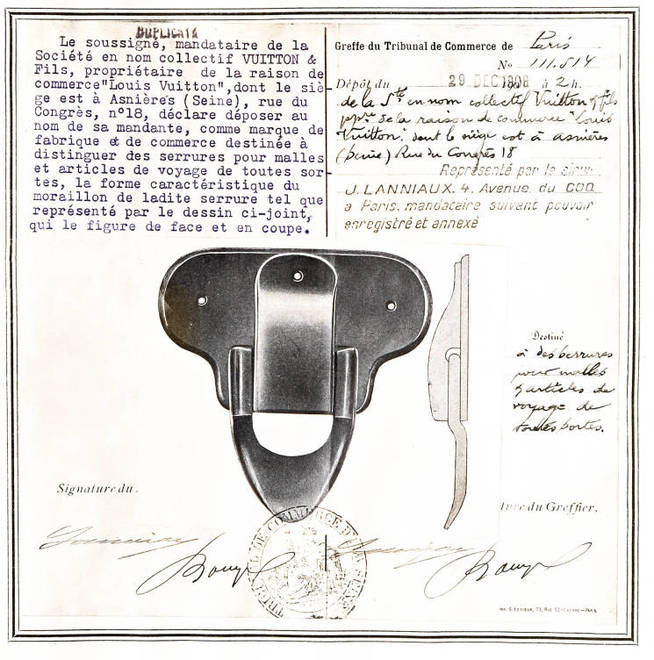 DUPLICATA
Le soussigné, mandataire de la
Société en nom collectif VUITTON &
Fils, propriétaire de la raison de
commerce"Louis Vuitton",dont le siè
ge est à Asnières (Seine), rue du
Congrès, n°18, déclare déposer au
nom de sa mandante, comme marque de
fabrique & de commerce destinée à
distinguer des serrures pour malles
et articles de voyage de toutes sor
tes, la forme caractéristique du
moraillon de ladite serrure tel que
représenté par le dessin ci-joint,
qui le figure de face et en coupe.
Greffe du Tribunal de Commerce de Paris
N° 111.514
Dépôt du 29 DEC 1908 à 2 h.
de la Sté en nom collectif Vuitton & fils
ppre de la raison de commerce "Louis
Vuitton", dont le siège est à Asnières
(Seine) Rue du Congrès 18
Représenté par le sieur
J. LANNIAUX. 4, Avenue du COQ
à Paris. mandataire suivant pouvoir
enregistré et annexé
Destiné
à des serrures
pour malles
& articles de
voyage de
toutes sortes.
Signature du.
ture du Greffier.
TRIBUNAL DE COMMERCE DE LA SEINE